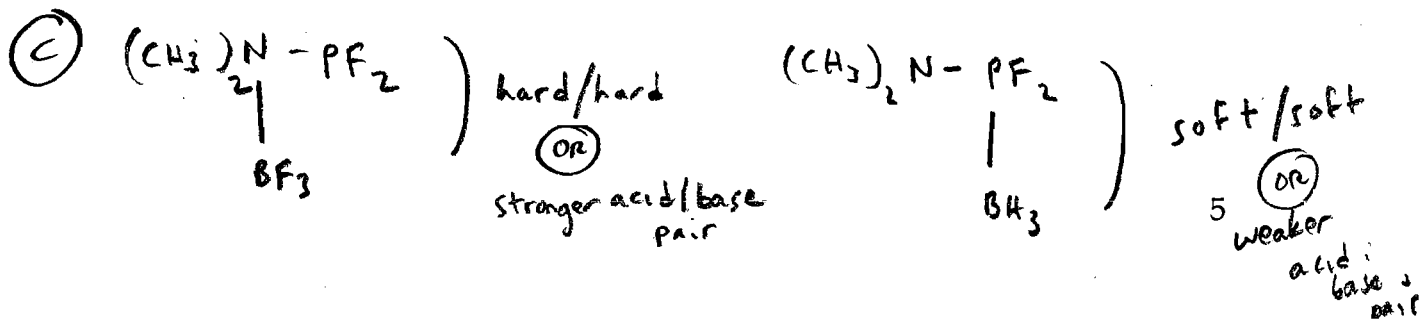 Ⓒ (CH₃)₂N – PF₂
|
BF₃
hard/hard
OR
stronger acid/base
pair
(CH₃)₂N – PF₂
|
BH₃
soft/soft
OR
5
weaker
acid
base
pair